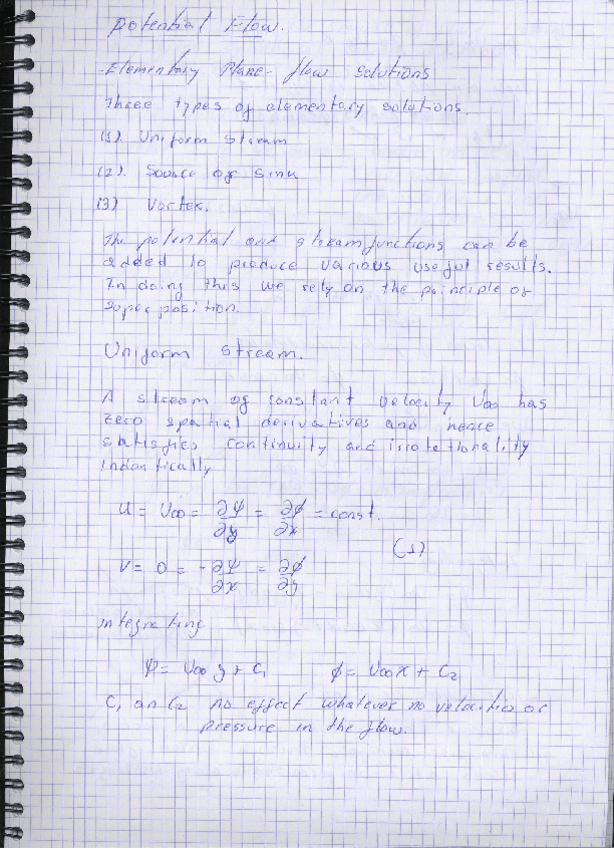 Potential Flow.
Elementary Plane-flow solutions
Three types of elementary solutions.
(1). Uniform Stream
(2). Source or Sink
(3) Vortex.
The potential and streamfunctions can be
added to produce various useful results.
In doing this we rely on the principle of
superposition.
Uniform stream.
A stream of constant velocity U∞ has
zero spatial derivatives and hence
satisfies continuity and irrotationality
indentically
U = U∞ = ∂ψ/∂y = ∂ϕ/∂x = const.
(1)
V = 0 = -∂ψ/∂x = ∂ϕ/∂y
integrating
ψ = U∞y + C₁ ϕ = U∞x + C₂
C₁ an C₂ no effect whatever no velocities or
pressure in the flow.